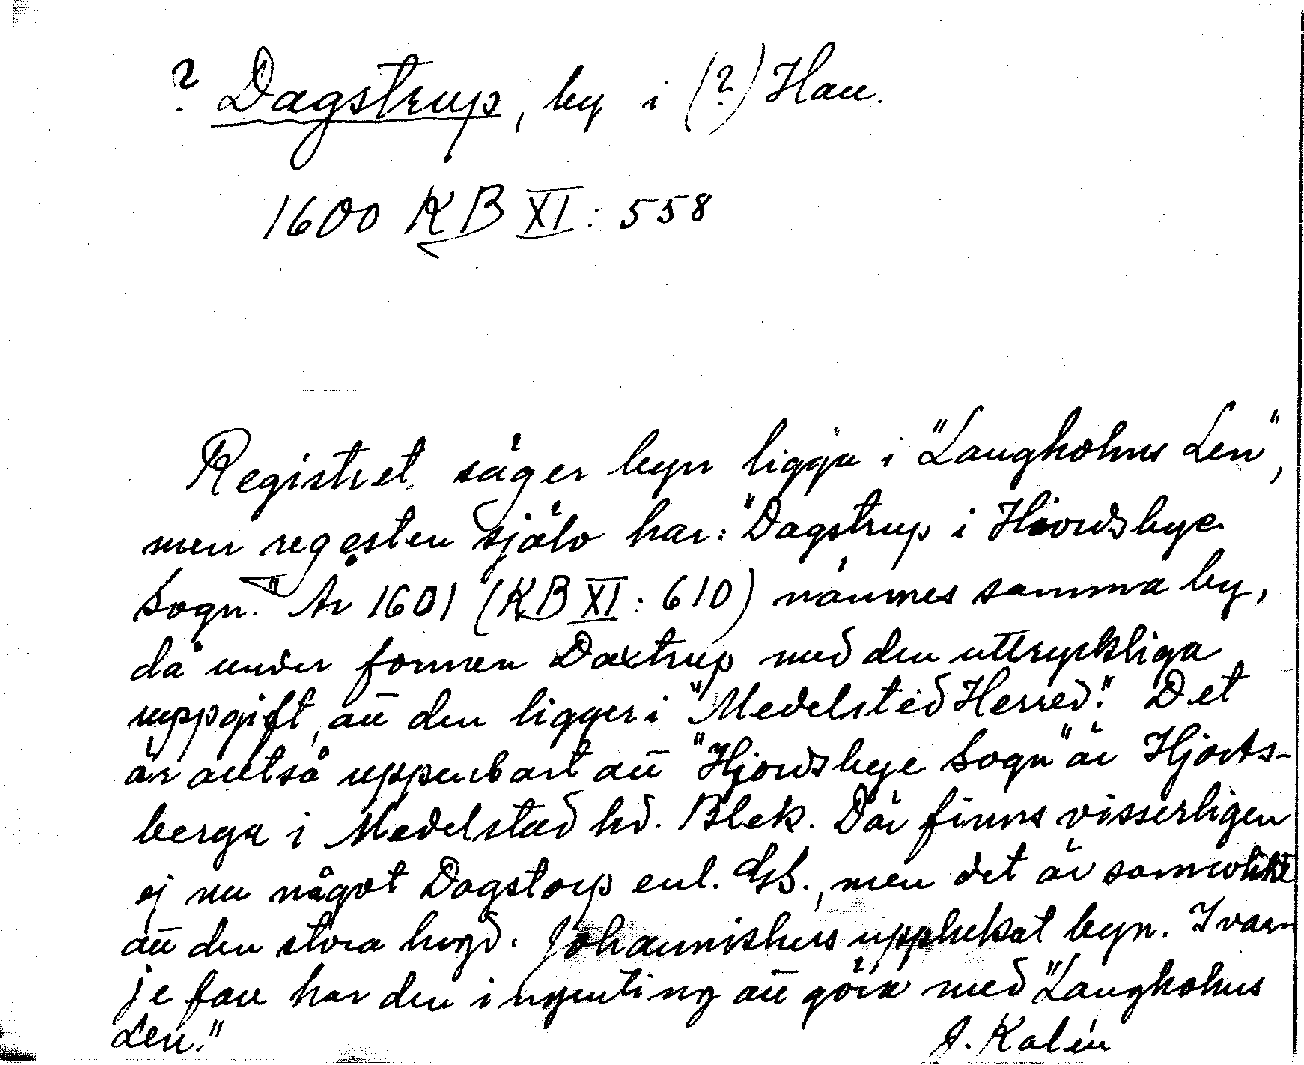 ? Dagstrup, by i (?) Hall.
1600 KB XI: 558
Registret säger byn ligga i "Laugholms Len",
men regesten själv har: "Dagstrup i Hiordsbye
Sogn." År 1601 (KB XI: 610) nämnes samma by,
då under formen Daxtrup med den uttryckliga
uppgift, att den ligger i "Medelsted Herred." Det
är alltså uppenbart att "Hjordsbye Sogn" är Hjorts-
berga i Medelstad hd. Blek. Där finns visserligen
ej nu något Dagstorp enl. GS., men det är sannolikt
att den stora hvgd. Johannishus uppslukat byn. I var-
je fall har den ingenting att göra med "Laugholms
Len."
J. Kalén